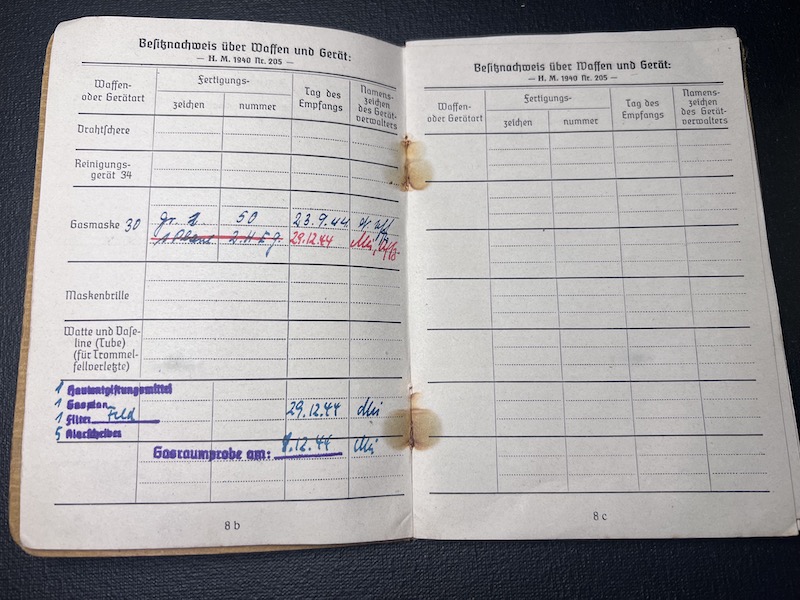 Besitznachweis über Waffen und Gerät:
— H. M. 1940 Nr. 205 —
Waffen-
oder Gerätart
Fertigungs-
zeichen
nummer
Tag des
Empfangs
Namens-
zeichen
des Gerät-
verwalters
Drahtschere
Reinigungs-
gerät 34
Gasmaske 30 gr. 2 50 23.9.44
29.12.44
Maskenbrille
Watte und Vase-
line (Tube)
(für Trommel-
fellverletzte)
1 Hautentgiftungsmittel
1 Gasplan 29.12.44
1 Filter Feld
5 Klarscheiben
Gasraumprobe am: 12.44
8 b
Besitznachweis über Waffen und Gerät:
— H. M. 1940 Nr. 205 —
Waffen-
oder Gerätart
Fertigungs-
zeichen
nummer
Tag des
Empfangs
Namens-
zeichen
des Gerät-
verwalters
8 c